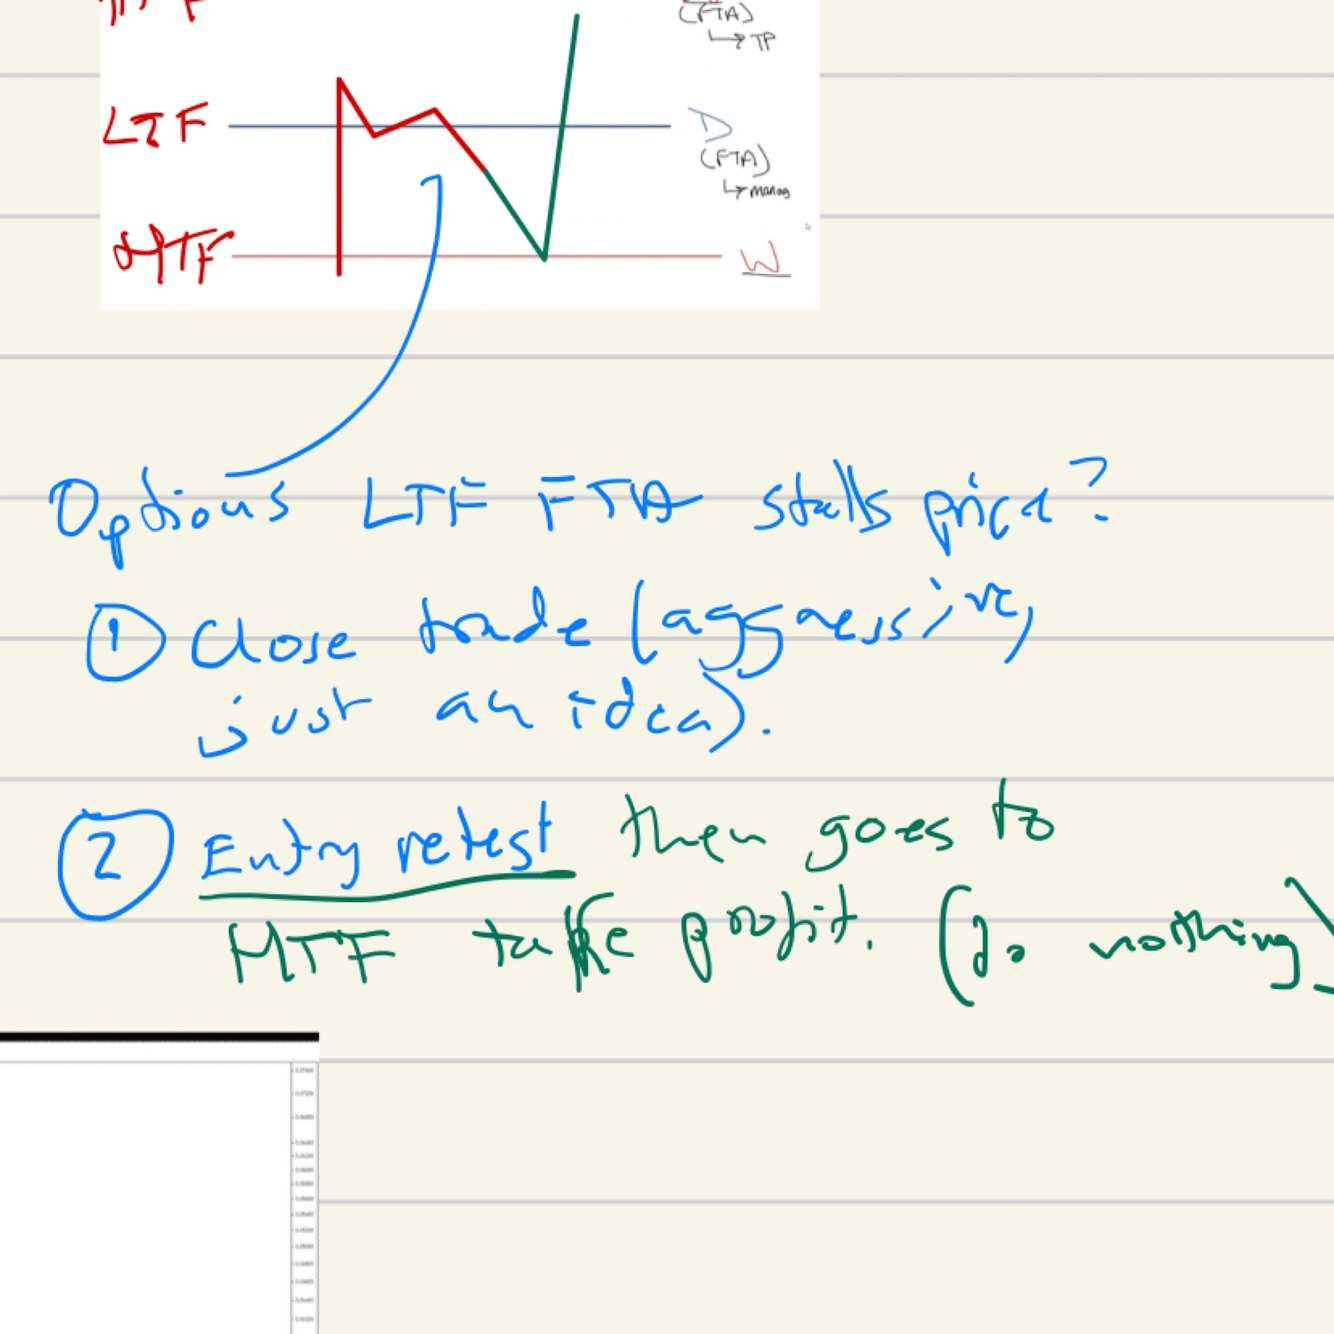 (FTA)
↳ TP
LTF
D
(FTA)
↳ manag
MTF
W
Options LTF FTA stalls price?
① Close trade (aggressive,
just an idea).
② Entry retest then goes to
MTF take profit. (do nothing)